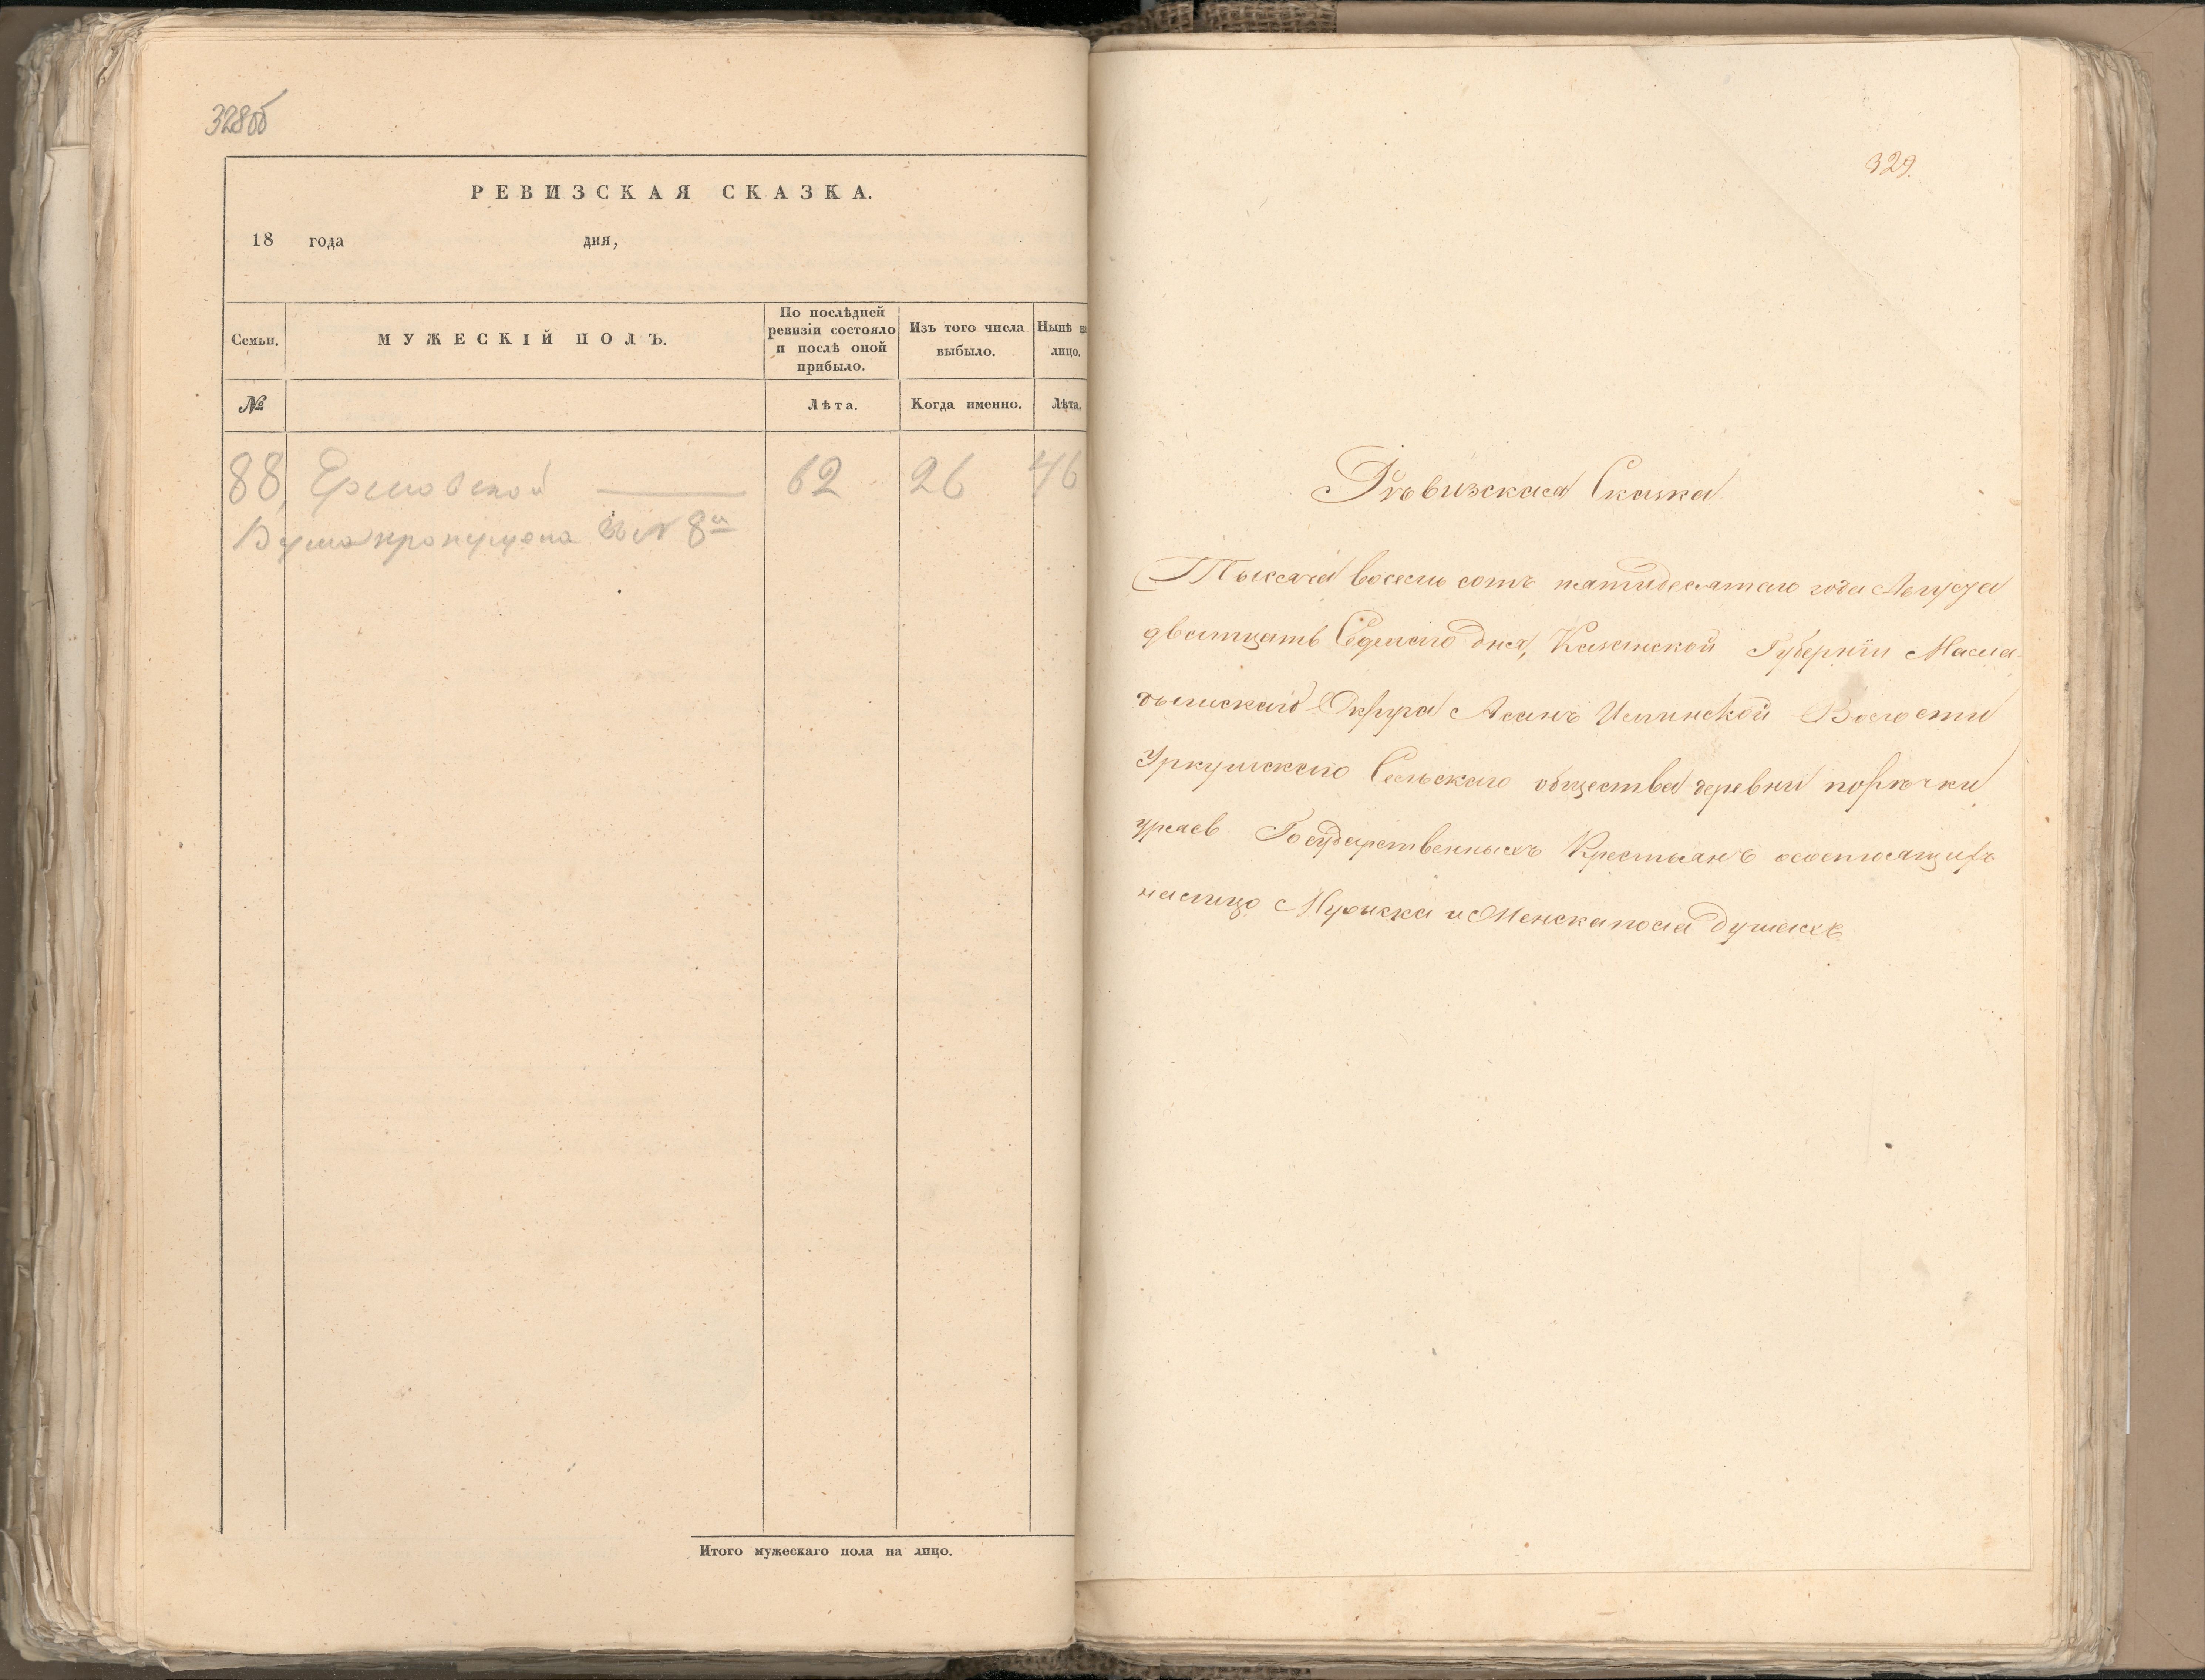 328об
РЕВИЗСКАЯ СКАЗКА.
18 года дня,
Семьи.
МУЖЕСКІЙ ПОЛЪ.
По послѣдней
ревизіи состояло
и послѣ оной
прибыло.
Изъ того числа
выбыло.
Нынѣ на
лицо.
№
Лѣта.
Когда именно.
Лѣта.
88, 62 26 46
пропущена № 8й
Итого мужескаго пола на лицо.
329.
Ревизская Сказка
Тысяча восемь сотъ пятидесятаго года Августа
дватцать Седмаго дня, Казанской Губерніи Мама
дышскаго Округа Асанъ Илинской Волости
Уркушскаго Сельскаго общества деревни порѣчки
Государственныхъ Крестьянъ о состоящихъ
налицо Мужска и Женска пола душахъ